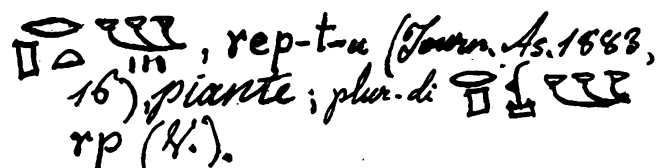 𓂋𓊪𓏏 𓏥, rep-t-u (Journ. As. 1883,
16), piante; plur. di 𓂋𓊪
rp (V.).